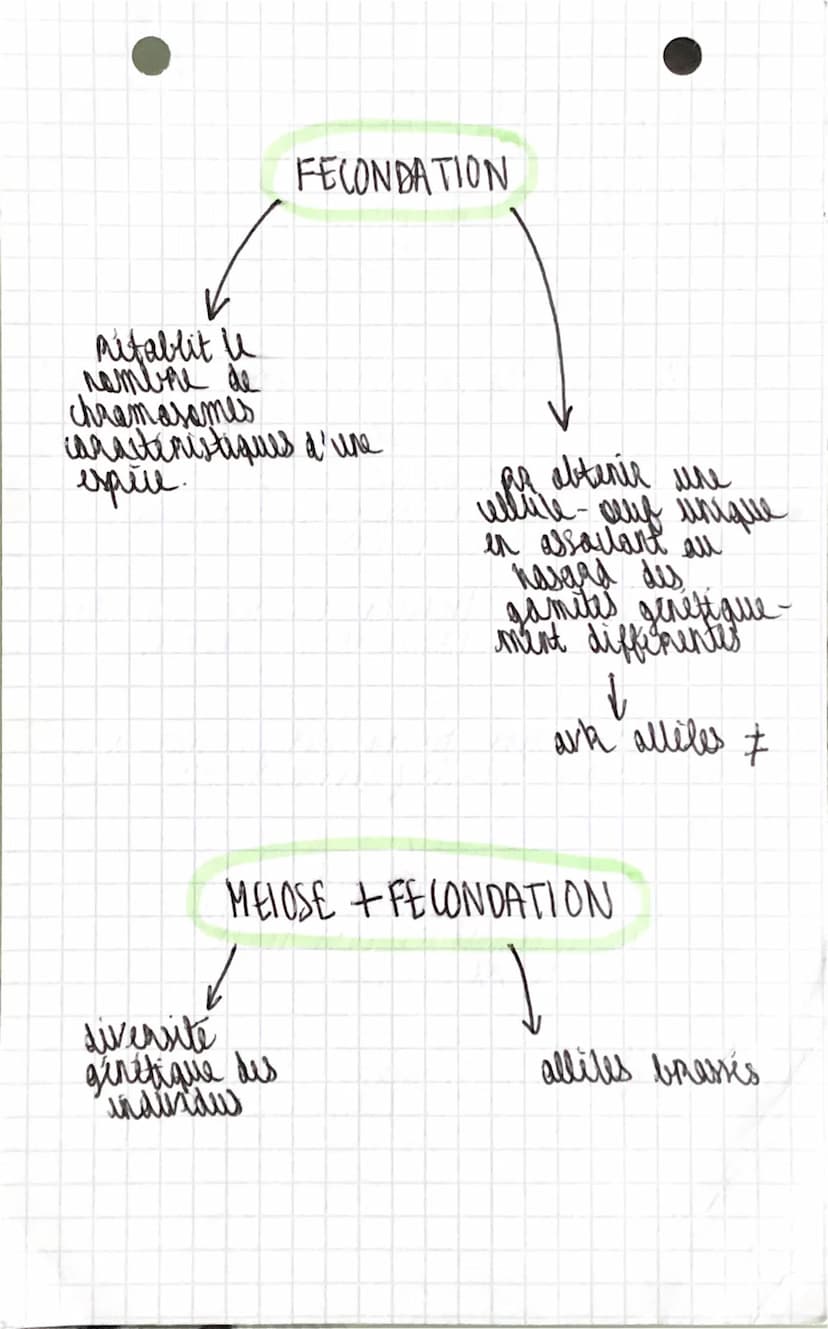 FECONDATION
rétablit le
nombre de
chromosomes
caractéristiques d'une
espèce.
pr obtenir une
cellule-oeuf unique
en associant au
hasard des
gamètes génétique-
ment différentes
↓
avk allèles ≠
MEIOSE + FECONDATION
diversité
génétique des
individus
allèles brassés